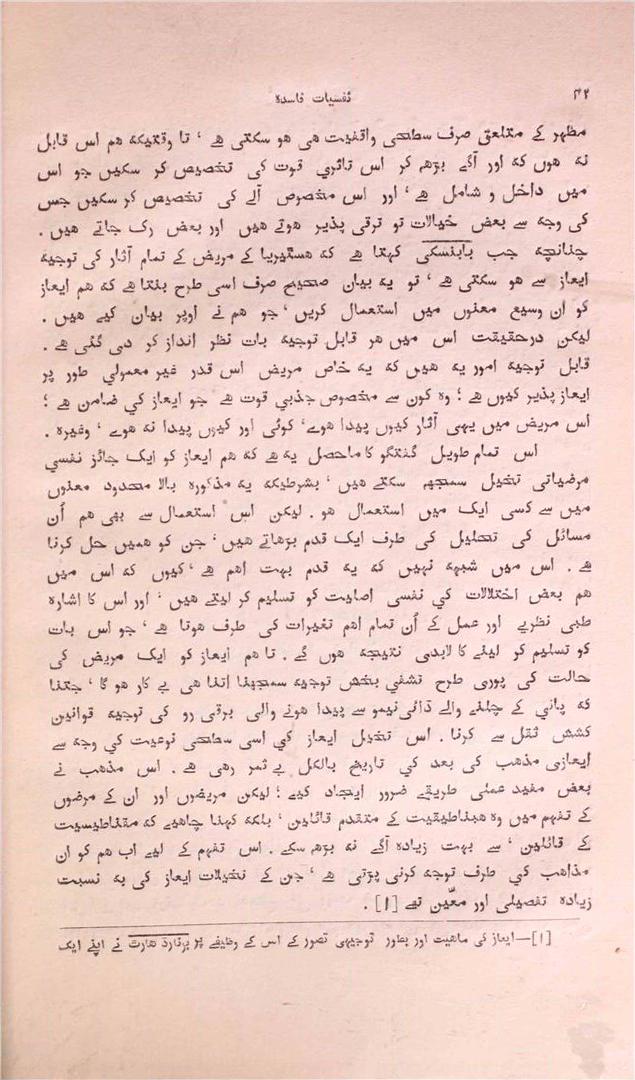 ۴۲
نفسیات فاسدہ
مظہر کے متعلق صرف سطحی واقفیت ہی ہو سکتی ہے ، تا وقتیکہ ہم اس قابل
نہ ہوں کہ اور آگے بڑھ کر اس تاثری قوت کی تخصیص کر سکیں جو اس
میں داخل و شامل ہے ، اور اس مخصوص آلے کی تخصیص کر سکیں جس
کی وجہ سے بعض خیالات تو ترقی پذیر ہوتے ہیں اور بعض رک جاتے ہیں ۔
چنانچہ جب بابنسکی کہتا ہے کہ ہسٹیریا کے مریض کے تمام آثار کی توجیہ
ایعاز سے ہو سکتی ہے ، تو یہ بیان صحیح صرف اسی طرح بنتا ہے کہ ہم ایعاز
کو ان وسیع معنوں میں استعمال کریں ، جو ہم نے اوپر بیان کیے ہیں ۔
لیکن درحقیقت اس میں ہر قابل توجیہ بات نظر انداز کر دی گئی ہے ۔
قابل توجیہ امور یہ ہیں کہ یہ خاص مریض اس قدر غیر معمولی طور پر
ایعاز پذیر کیوں ہے ؛ وہ کون سے مخصوص جذبی قوت ہے جو ایعاز کی ضامن ہے ؛
اس مریض میں یہی آثار کیوں پیدا ہوے ، کوئی اور کیوں پیدا نہ ہوے ، وغیرہ ۔
اس تمام طویل گفتگو کا ماحصل یہ ہے کہ ہم ایعاز کو ایک جائز نفسی
مرضیاتی تخیل سمجھ سکتے ہیں ، بشرطیکہ یہ مذکورہ بالا محدود معنوں
میں سے کسی ایک میں استعمال ہو ۔ لیکن اس استعمال سے بھی ہم اُن
مسائل کی تحلیل کی طرف ایک قدم بڑھاتے ہیں ، جن کو ہمیں حل کرنا
ہے ۔ اس میں شبہہ نہیں کہ یہ قدم بہت اہم ہے ، کیوں کہ اس میں
ہم بعض اختلالات کی نفسی اصلیت کو تسلیم کر لیتے ہیں ، اور اس کا اشارہ
طبی نظریے اور عمل کے اُن تمام اہم تغیرات کی طرف ہوتا ہے ، جو اس بات
کو تسلیم کو لینے کا لابدی نتیجہ ہوں گے ۔ تا ہم ایعاز کو ایک مریض کی
حالت کی پوری طرح تشفی بخش توجیہ سمجھنا اتنا ہی بے کار ہو گا ، جتنا
کہ پانی کے چلنے والے ڈائی نیمو سے پیدا ہونے والی برقی رو کی توجیہ قوانین
کشش ثقل سے کرنا ۔ اس تخیل ایعاز کی اسی سطحی نوعیت کی وجہ سے
ایعازی مذہب کی بعد کی تاریخ بالکل بے ثمر رہی ہے ۔ اس مذہب نے
بعض مفید عملی طریقے ضرور ایجاد کیے ؛ لیکن مریضوں اور ان کے مرضوں
کے تفہم میں وہ ہپناطیقیت کے متقدم قائلین ، بلکہ کہنا چاہیے کہ مقناطیسیت
کے قائلین ، سے بہت زیادہ آگے نہ بڑھ سکے ۔ اس تفہم کے لیے اب ہم کو ان
مذاہب کی طرف توجہ کرنی پڑتی ہے ، جن کے تخیلات ایعاز کی بہ نسبت
زیادہ تفصیلی اور معیّن تھے [۱] ۔
[۱]—ایعاز کی ماہیت اور بطور توجیہی تصور کے اس کے وظیفے پر برنارڈ ہارٹ نے اپنے ایک